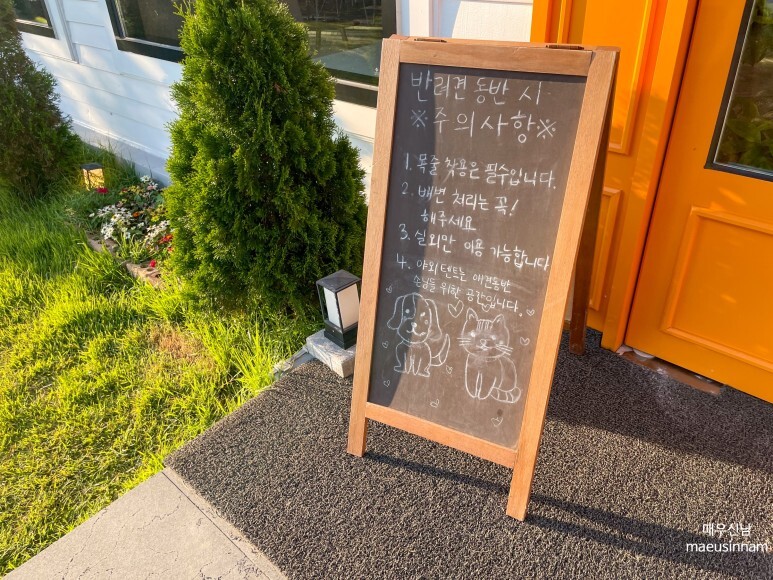 반려견 동반 시
※주의사항※
1. 목줄 착용은 필수입니다.
2. 배변 처리는 꼭!
해주세요
3. 실외만 이용 가능합니다
4. 야외 텐트는 애견동반
손님들 위한 공간입니다.
매우신남
maeusinnam